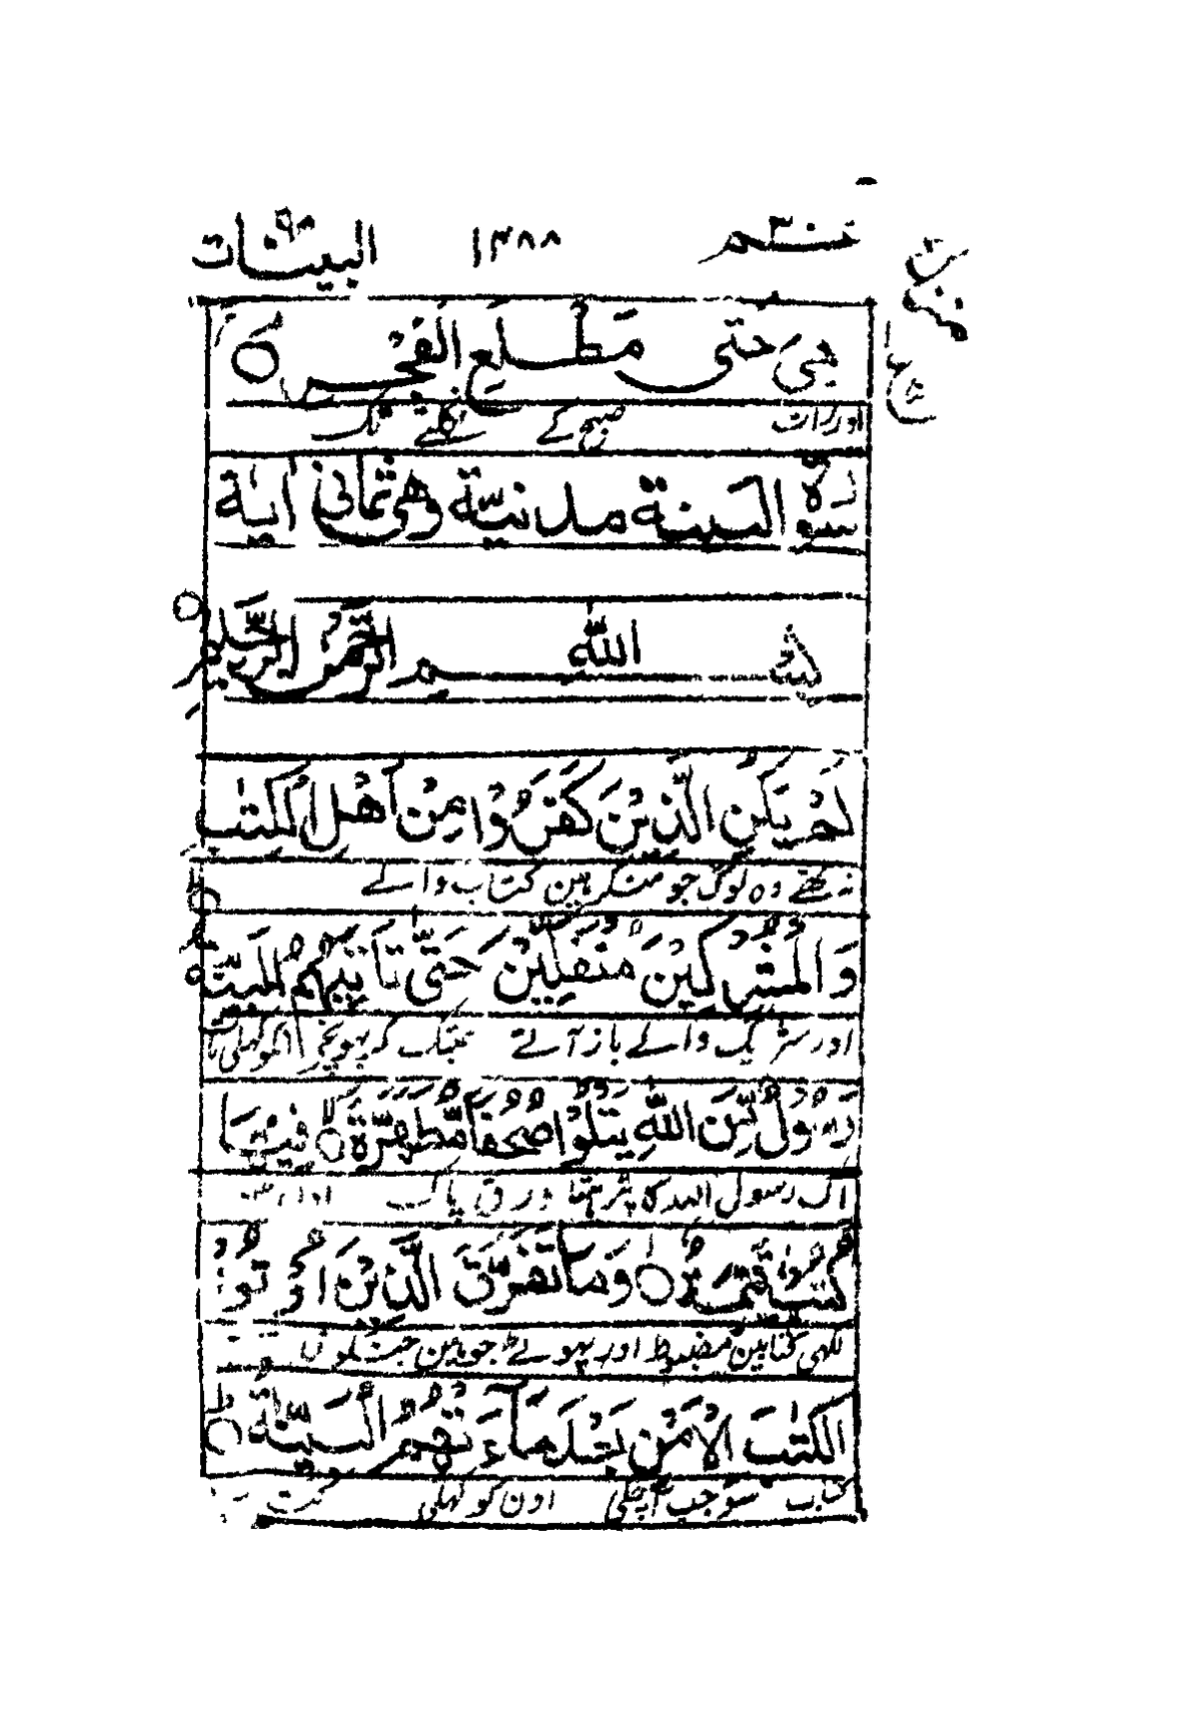 عنم ٣٠ ١٣٨٨ البينات ٩٨
هِيَ حَتّٰى مَطْلَعِ الْفَجْرِ ○
اور رات صبح کے نکلنے تک
سورة البينة مدنية وهي ثماني اية
بسم الله الرحمن الرحيم ○
لَمْ يَكُنِ الَّذِيْنَ كَفَرُوْا مِنْ اَهْلِ الْكِتٰبِ
نہ تھے وہ لوگ جو منکر ہین کتاب والے
وَالْمُشْرِكِيْنَ مُنْفَكِّيْنَ حَتّٰى تَاْتِيَهُمُ الْبَيِّنَةُ ○
اور شریک والے باز آتے جبتک کر پہونچے انکو کھلی بات
رَسُوْلٌ مِّنَ اللّٰهِ يَتْلُوْا صُحُفًا مُّطَهَّرَةً ○ فِيْهَا
اک رسول اللہ کا پڑہتا ورق پاک
كُتُبٌ قَيِّمَةٌ ○ وَمَا تَفَرَّقَ الَّذِيْنَ اُوْتُوا
لکھی کتابین مضبوط اور پھوٹے جو ہین جنکو ملی
الْكِتٰبَ اِلَّا مِنْ بَعْدِ مَا جَآءَتْهُمُ الْبَيِّنَةُ ○
کتاب سو جب آچکی اون کو کھلی بات